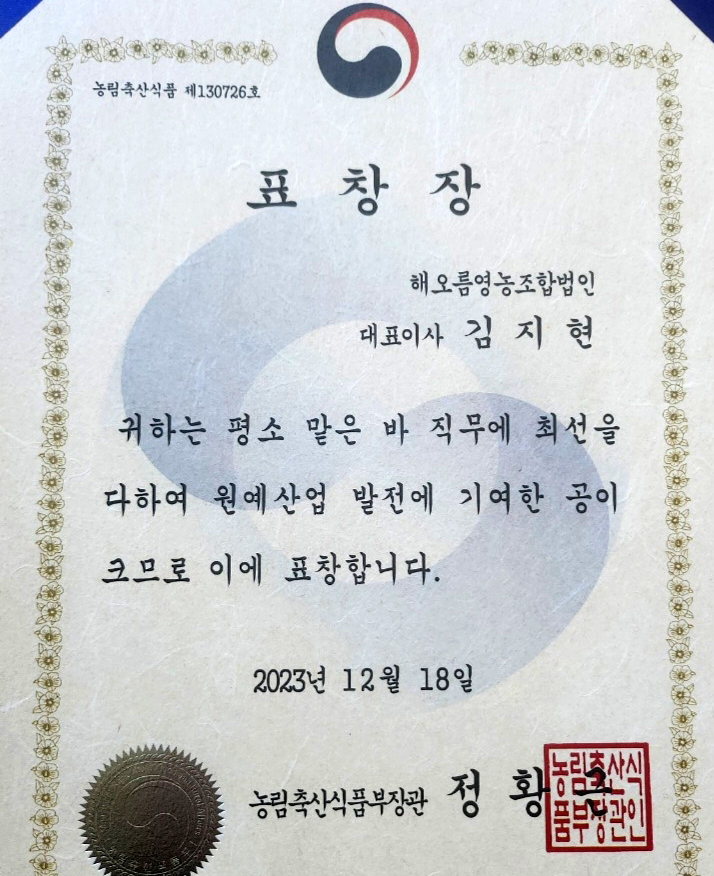 농림축산식품 제130726호
표 창 장
해오름영농조합법인
대표이사 김 지 현
귀하는 평소 맡은 바 직무에 최선을
다하여 원예산업 발전에 기여한 공이
크므로 이에 표창합니다.
2023년 12월 18일
농림축산식품부장관 정 황 근
농림축산식
품부장관인